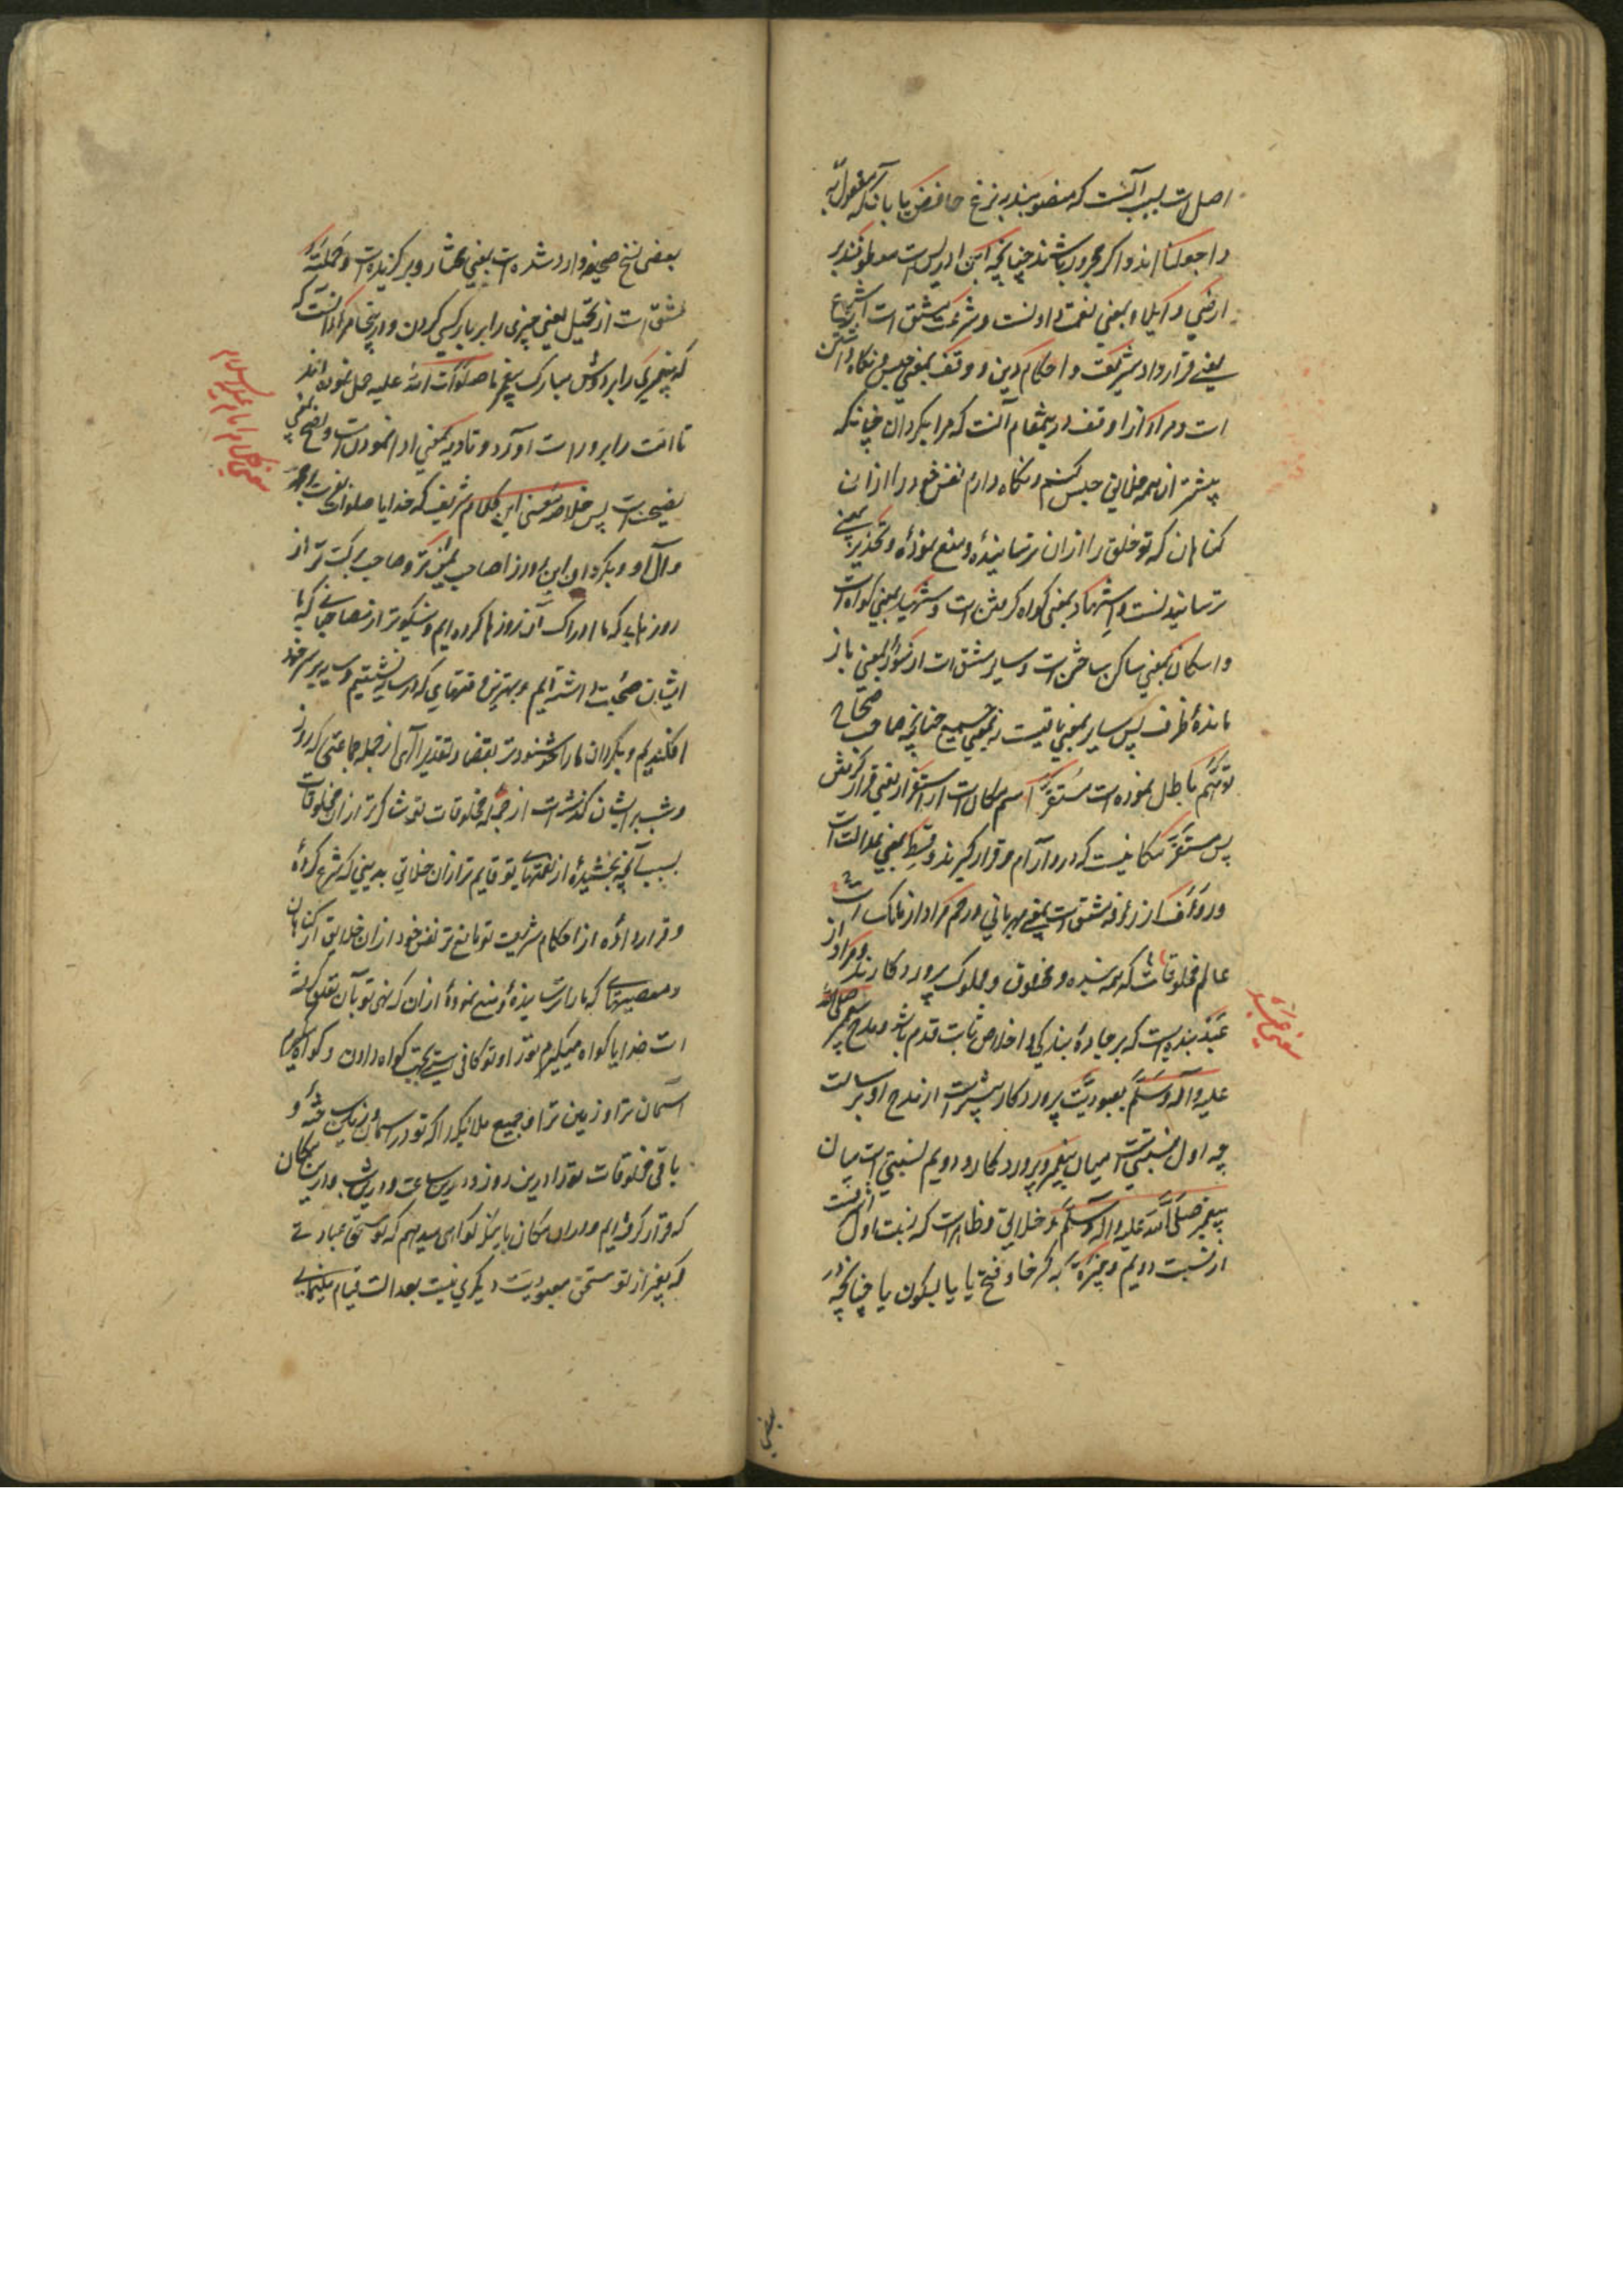 اصل است بسبب آنست که منصوبند بنزع خافض یا بانکه مفعول به
واجعلنا اند و اگر مجرور باشند چنانچه ابن ادریس است معطوفند بر
ارضی و ایلاء بمعنی نعمت دادنست و شرعت مشتق است از تشریع
یعنی قرار داد شریعت و احکام دین و وقف بمعنی حبس و نگاه داشتن
است و مراد از اوقف در ینمقام آنست که مرا بگردان چنانکه
پیشتر از همه خلایق حبس کنم و نگاه دارم نفس خود را از ان
گناهان که تو خلق را از ان ترسانیده و منع نموده و تحذیر بمعنی
ترسانیدنست و اشهاد بمعنی گواه گرفتن است و شهید بمعنی گواه است
و اسکان بمعنی ساکن ساختن است و سایر مشتق است از سؤر بمعنی باز
مانده ظرف پس سایر بمعنی باقیست نه بمعنی جمیع چنانچه صاحب صحاح
توهم باطل نموده است مستقر اسم مکان است از استقرار یعنی قرار گرفتن
پس مستقر مکانیست که در او آرام و قرار گیرند و قسط بمعنی عدالت است
و رؤف از رأفة مشتق است بمعنی مهربانی و رحم و مراد از مالک است
عالم مخلوقات که همه بنده و مخلوق و مملوک پروردگارند و مراد از
عبد بنده ایست که بر جاده بندگی و اخلاص ثابت قدم باشد و مدح پیغمبر صلی الله
علیه و آله و سلم بعبودیت پروردگار پیشتر است از مدح او برسالت
چه اول نسبتی است میان پیغمبر و پروردگار و دویم نسبتی است میان
پیغمبر صلی الله علیه و آله و سلم و خلایق و ظاهر است که نسبت اول اشرفست
از نسبت دویم و خیرة بکسر خا و فتح یا یا بسکون یا چنانچه در
معنی عبد
بعضی
بعضی نسخ صحیفه وارد شده است بمعنی مختار و برگزیده است و حملته
مشتق است از تحمیل یعنی چیزی را بر بار کسی کردن و در ینجا مراد آنست که
که پیغمبری را بر دوش مبارک پیغمبر ما صلوات الله علیه حمل نموده اند
تا امت را برو راست آورد و تادیه بمعنی ادا نمودن است و نصح بمعنی
نصیحت است پس خلاصه معنی این کلام شریف که خدایا صلوات بفرست بر محمد
و آل او و بگردان این روز را صاحب یمن تر و صاحب برکت تر از
روزهایی که ما ادراک آن روزها کرده ایم و نیکوتر از مصاحبانی که با
ایشان صحبت داشته ایم و بهترین وقتهایی که در سایه نشستیم و سایه بر سر خود
افکندیم و بگردان ما را خوشنودتر بقضا و تقدیر الهی از جمله جماعتی که روز
و شب بر ایشان گذشته است از جمله مخلوقات تو شاکرتر از ان مخلوقات
بسبب آنچه بخشیده از نعمتهای تو قایم تر از ان خلایق بدینی که شرع کرده
و قرار داده از احکام شریعت تو مانع تر نفس خود از ان خلایق از گناهان
و معصیتهایی که ما را ترسانیده و منع نموده از ان که نهی تو بآن تعلق گرفته
است خدایا گواه میگیرم ترا و تو کافی هستی بجهت گواه دادن و گواه میگیرم
آسمان ترا و زمین ترا و جمیع ملائکه را که تو در آسمان و زمین ساکن ساخته و
باقی مخلوقات تو را در ین روز و در ین ساعت و در ین شب و در ین مکان
که قرار گرفته ایم و در ان مکان باینکه گواهی میدهم که تو مستحق عبادتی
که بغیر از تو مستحق معبودیت دیگری نیست بعدالت قیام مینمایی
معنی کلام امام علیه السلام